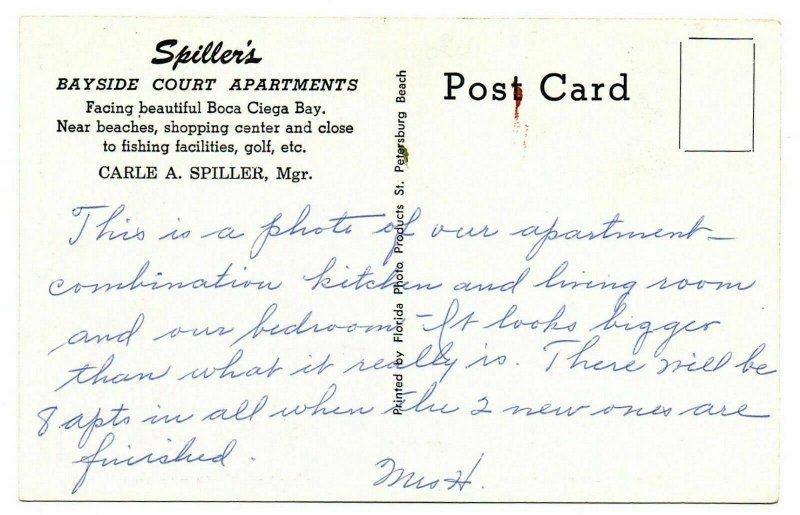 Spiller's
BAYSIDE COURT APARTMENTS
Facing beautiful Boca Ciega Bay.
Near beaches, shopping center and close
to fishing facilities, golf, etc.
CARLE A. SPILLER, Mgr.
Post Card
Printed by Florida Photo Products St. Petersburg Beach
This is a photo of our apartment—
combination kitchen and living room
and our bedroom—It looks bigger
than what it really is. There will be
8 apts in all when the 2 new ones are
finished.
Mrs H.